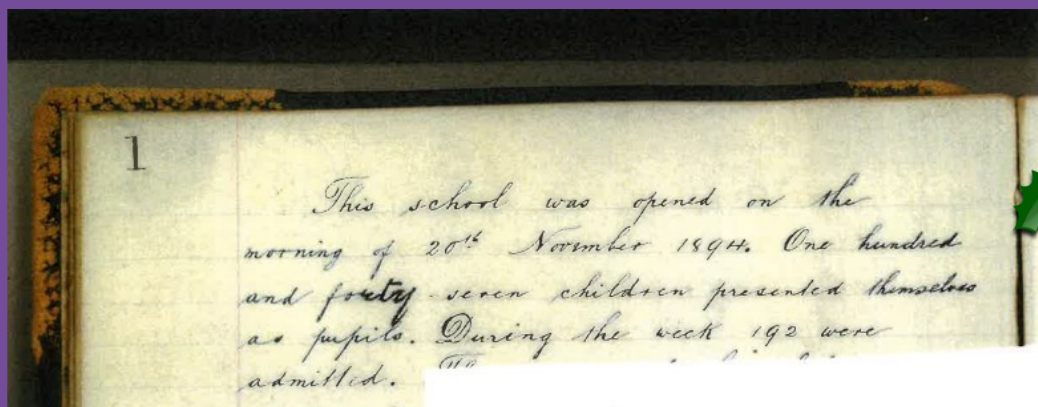 1
This school was opened on the
morning of 20th November 1894. One hundred
and forty-seven children presented themselves
as pupils. During the week 192 were
admitted.